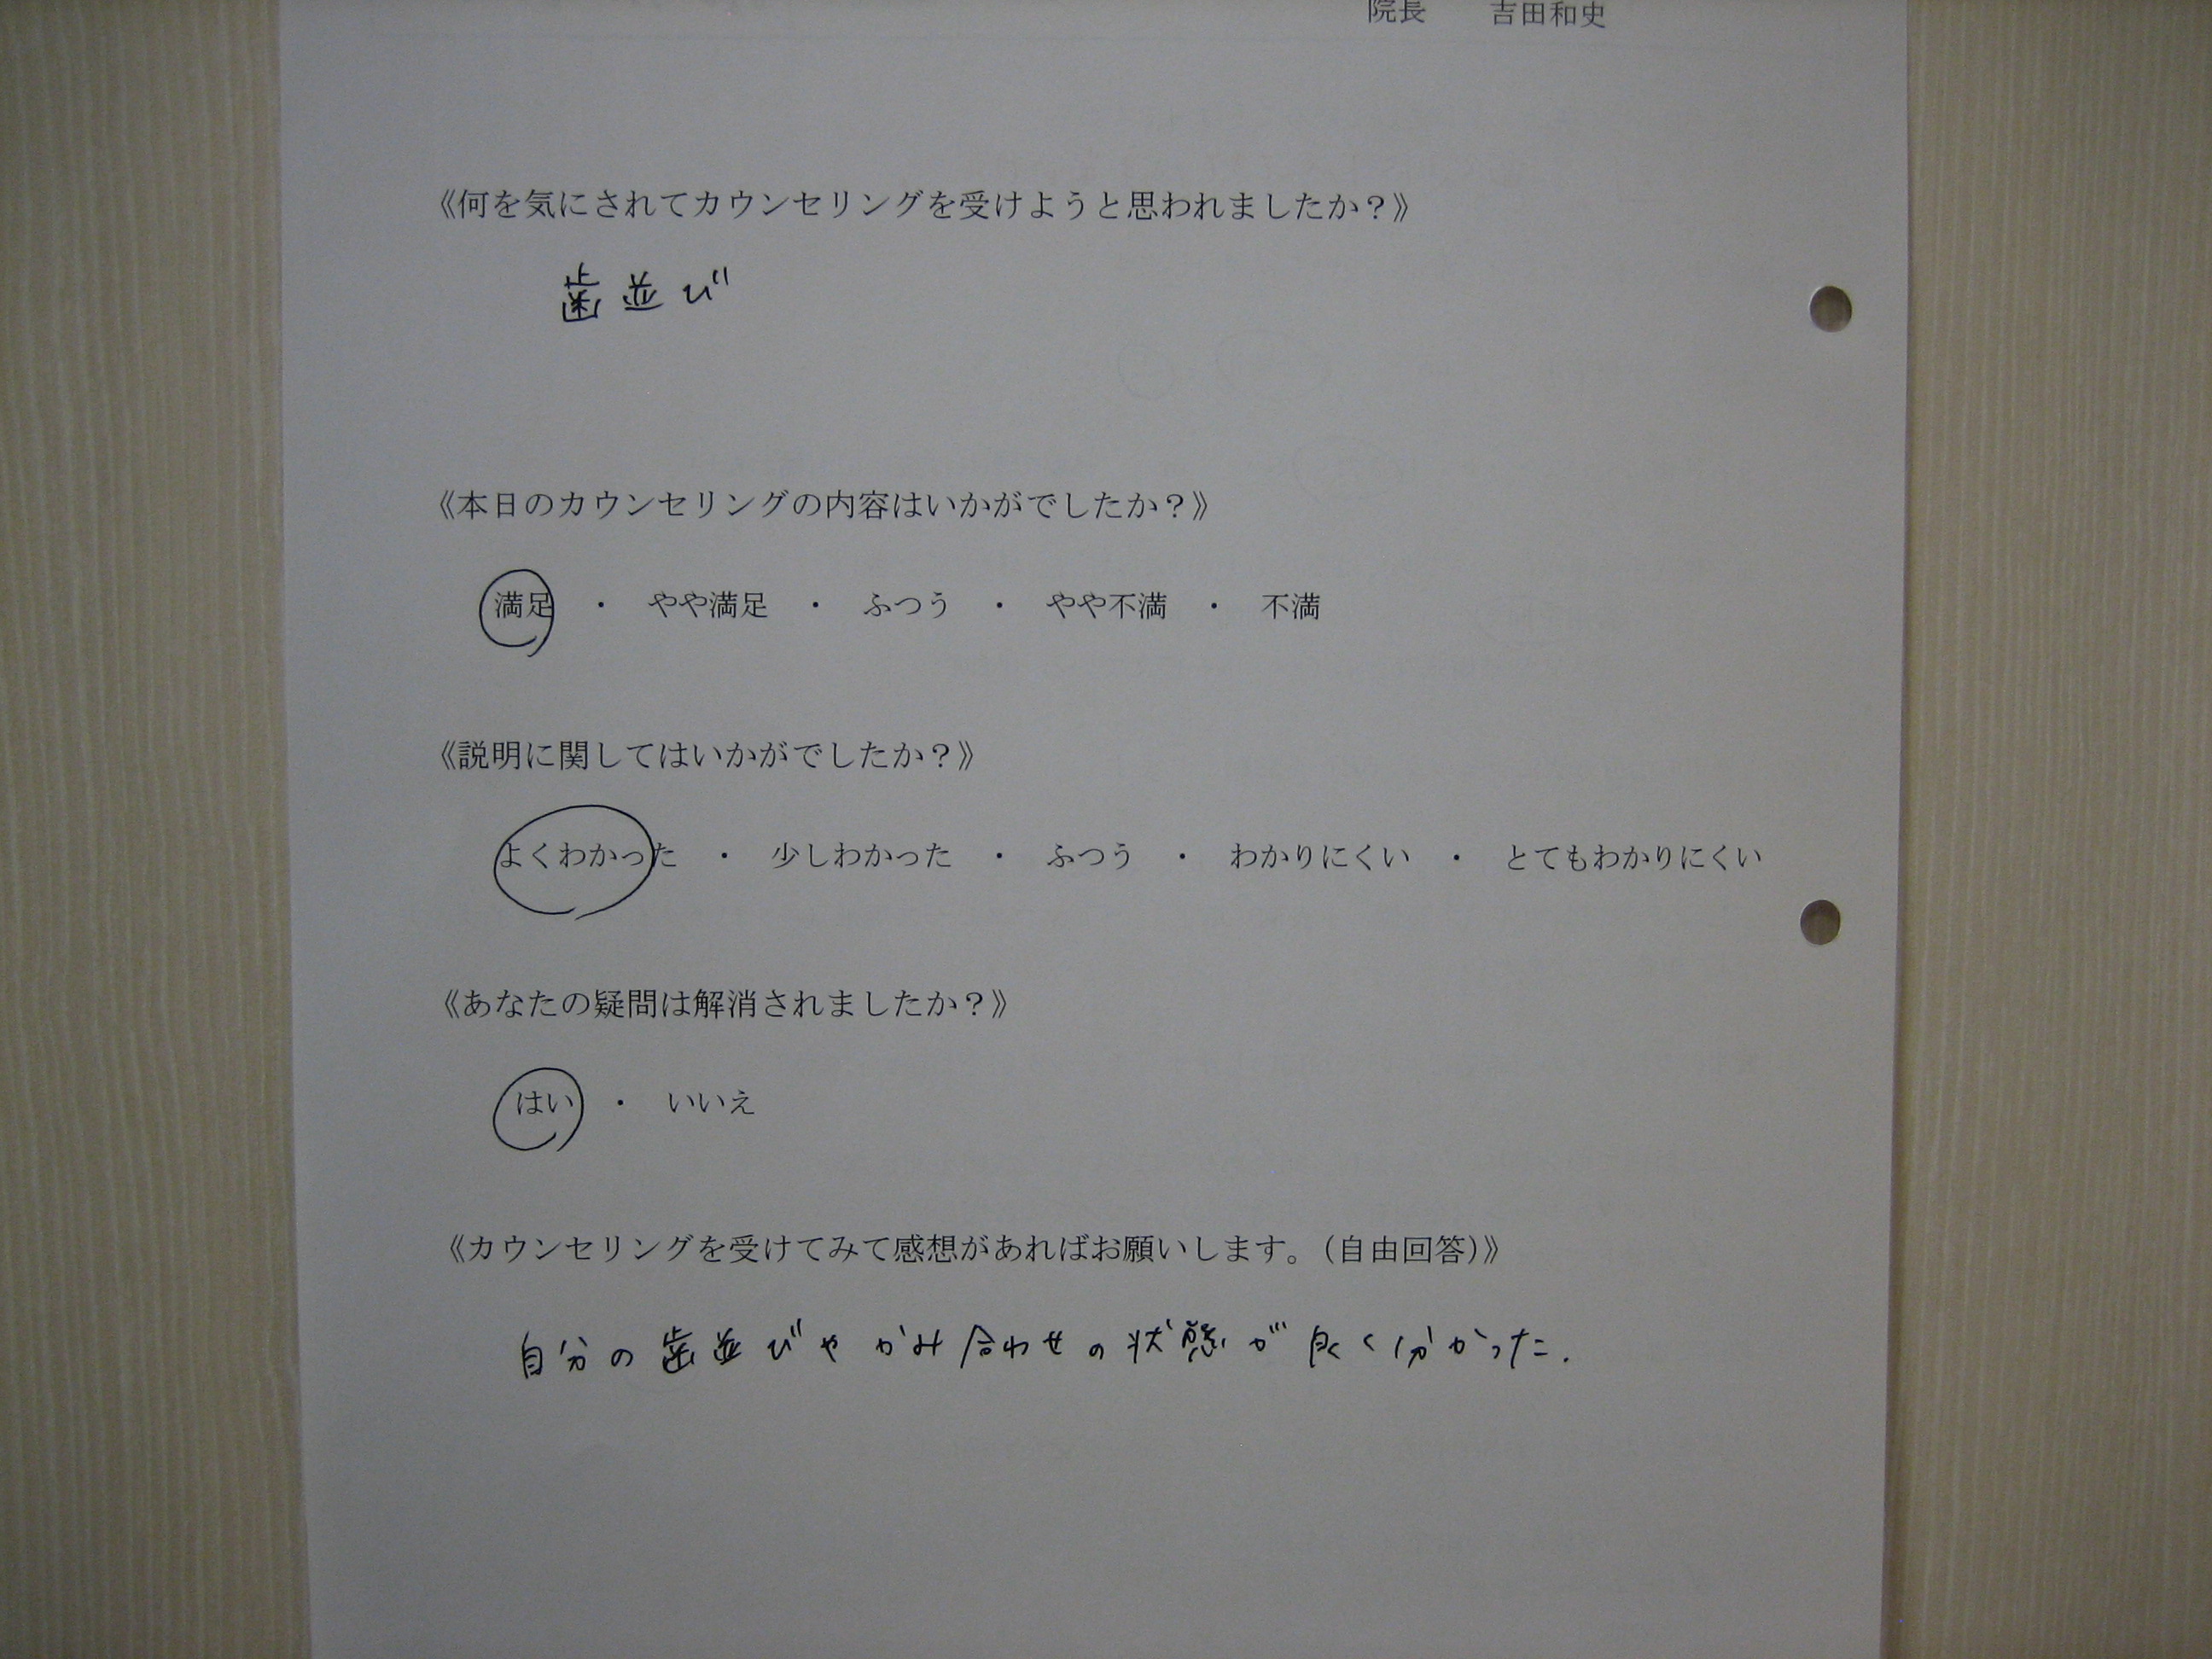 院長　吉田和史
《何を気にされてカウンセリングを受けようと思われましたか？》
歯並び
《本日のカウンセリングの内容はいかがでしたか？》
満足　・　やや満足　・　ふつう　・　やや不満　・　不満
《説明に関してはいかがでしたか？》
よくわかった　・　少しわかった　・　ふつう　・　わかりにくい　・　とてもわかりにくい
《あなたの疑問は解消されましたか？》
はい　・　いいえ
《カウンセリングを受けてみて感想があればお願いします。（自由回答）》
自分の歯並びやかみ合わせの状態が良く分かった.